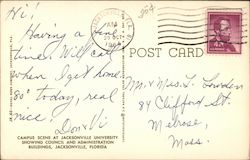 Hi!
Having a fine
time. Will call
when I get home.
80° today, real
nice.
Don + Vi
CAMPUS SCENE AT JACKSONVILLE UNIVERSITY
SHOWING COUNCIL AND ADMINISTRATION
BUILDINGS, JACKSONVILLE, FLORIDA
POST CARD
Mr. & Mrs. L. Lowden
84 Clifford St.
Melrose,
Mass.